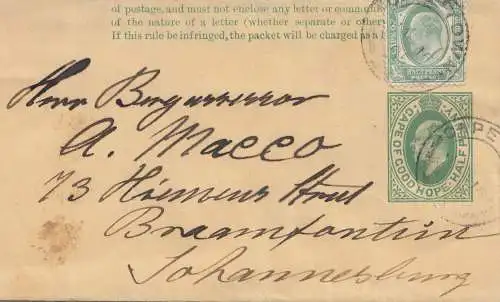 of postage, and must not enclose any letter or commun
of the nature of a letter (whether separate or other
If this rule be infringed, the packet will be charged as a l
Herr
A. Macco
73 Street
Braamfontein
Johannesburg
CAPE OF GOOD HOPE. HALF PENNY